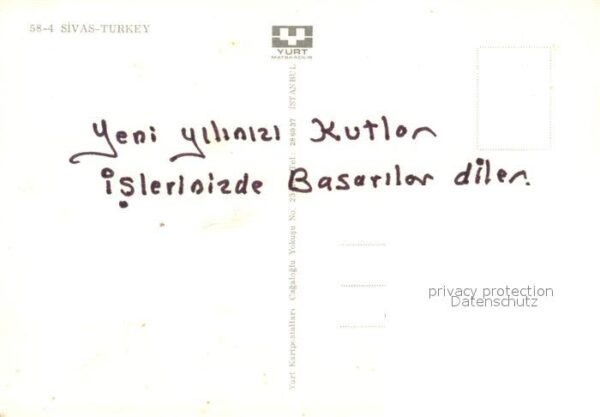 58-4 SİVAS-TURKEY
YURT
MATBAACILIK
Yeni yılınızı Kutlar
işlerinizde Basarılar diler.
Yurt Kartpostalları Cağaloğlu Yokuşu No. 25 Tel: 286037 İSTANBUL
privacy protection
Datenschutz